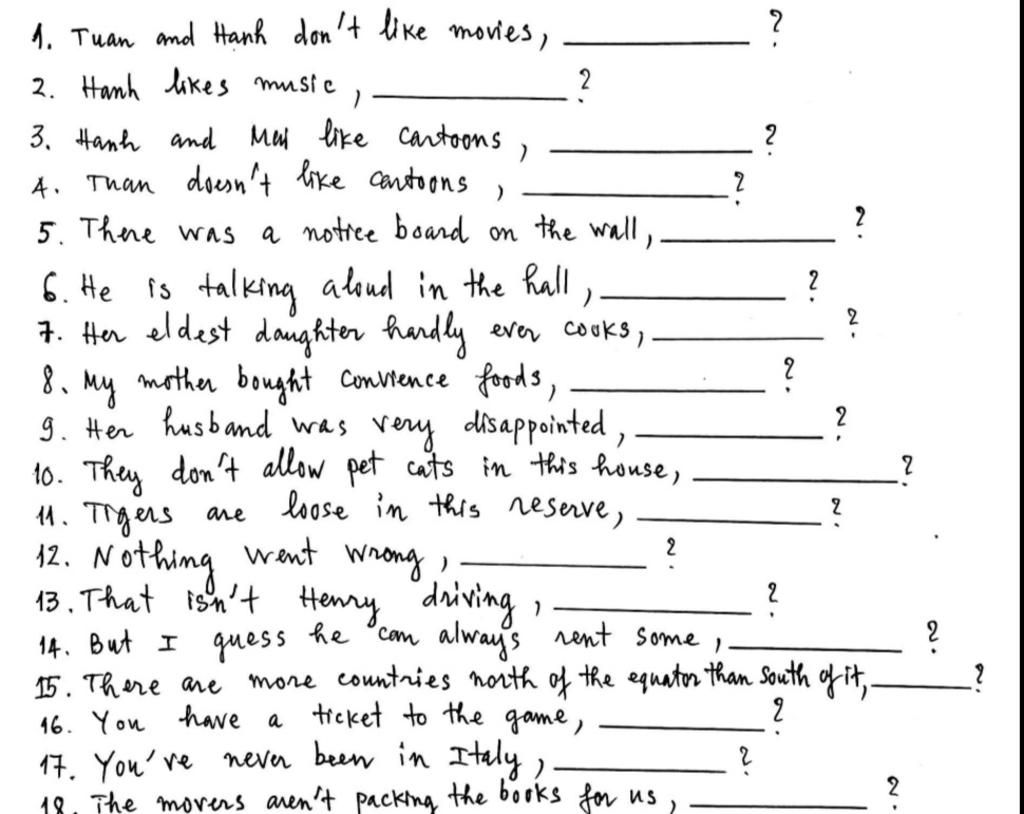 1. Tuan and Hanh don't like movies, __________ ?
2. Hanh likes music, __________ ?
3. Hanh and Mai like cartoons, __________ ?
4. Tuan doesn't like cartoons, __________ ?
5. There was a notice board on the wall, __________ ?
6. He is talking aloud in the hall, __________ ?
7. Her eldest daughter hardly ever cooks, __________ ?
8. My mother bought convience foods, __________ ?
9. Her husband was very disappointed, __________ ?
10. They don't allow pet cats in this house, __________ ?
11. Tigers are loose in this reserve, __________ ?
12. Nothing went wrong, __________ ?
13. That isn't Henry driving, __________ ?
14. But I guess he can always rent some, __________ ?
15. There are more countries north of the equator than south of it, ______ ?
16. You have a ticket to the game, __________ ?
17. You've never been in Italy, __________ ?
18. The movers aren't packing the books for us, __________ ?